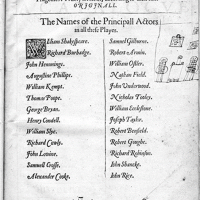 ORIGINALL.
The Names of the Principall Actors
in all these Playes.
William Shakespeare.
Richard Burbadge.
John Hemmings.
Augustine Phillips.
William Kempt.
Thomas Poope.
George Bryan.
Henry Condell.
William Slye.
Richard Cowly.
John Lowine.
Samuell Crosse.
Alexander Cooke.
Samuel Gilburne.
Robert Armin.
William Ostler.
Nathan Field.
John Underwood.
Nicholas Tooley.
William Ecclestone.
Joseph Taylor.
Robert Benfield.
Robert Goughe.
Richard Robinson.
John Shancke.
John Rice.